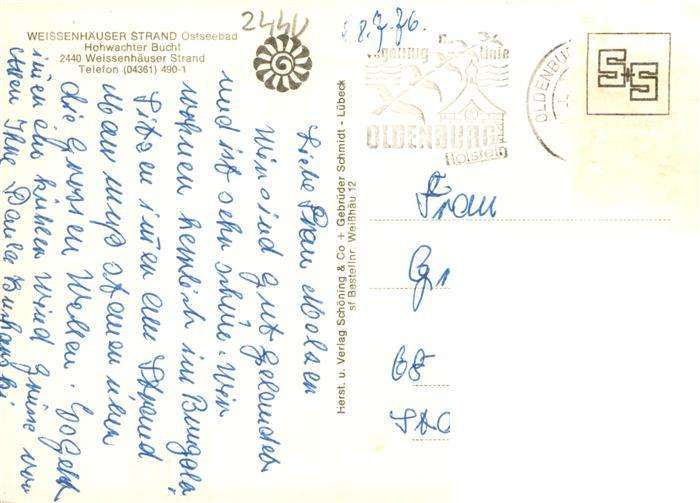 WEISSENHÄUSER STRAND Ostseebad
Hohwachter Bucht
2440 Weissenhäuser Strand
Telefon (04361) 490-1
2440
8.7.76.
Vogelflug Linie
OLDENBURG
Holstein
OLDENBU
S+S
Liebe Frau Molzen
Wir sind gut gelandet
und ist sehr schön. Wir
wohnen herrlich im Bungalo
Sitzen immer am Strand
Man muß staunen über
die grossen Wellen. Es geht
immer ein kühler Wind Grüsse von
allen Ihre Paula
Herst. u. Verlag Schöning & Co + Gebrüder Schmidt - Lübeck
sf Bestellnr. Weißhäu 12
Frau